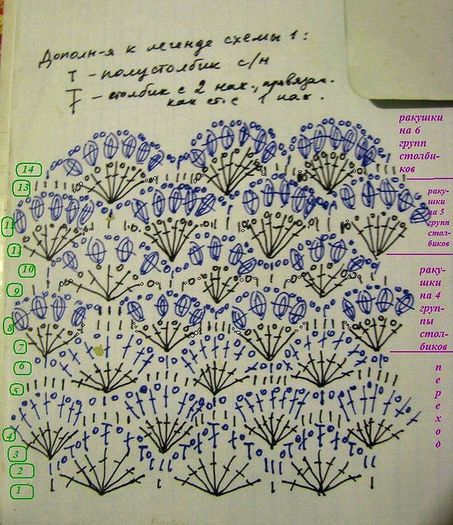 Дополн-я к легенде схемы 1:
Т - полустолбик с/н
Ŧ - столбик с 2 нак., провязан.
как ст. с 1 нак.
ракушки
на 6
групп
столби-
ков
раку-
шки
на 5
групп
стол-
биков
раку-
шки
на 4
груп-
пы
стол-
биков
п
е
р
е
х
о
д
14
13
11
10
9
8
7
6
5
4
3
2
1